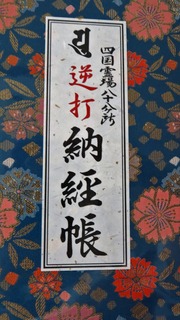 四国霊場八十八ヶ所
逆打納経帳